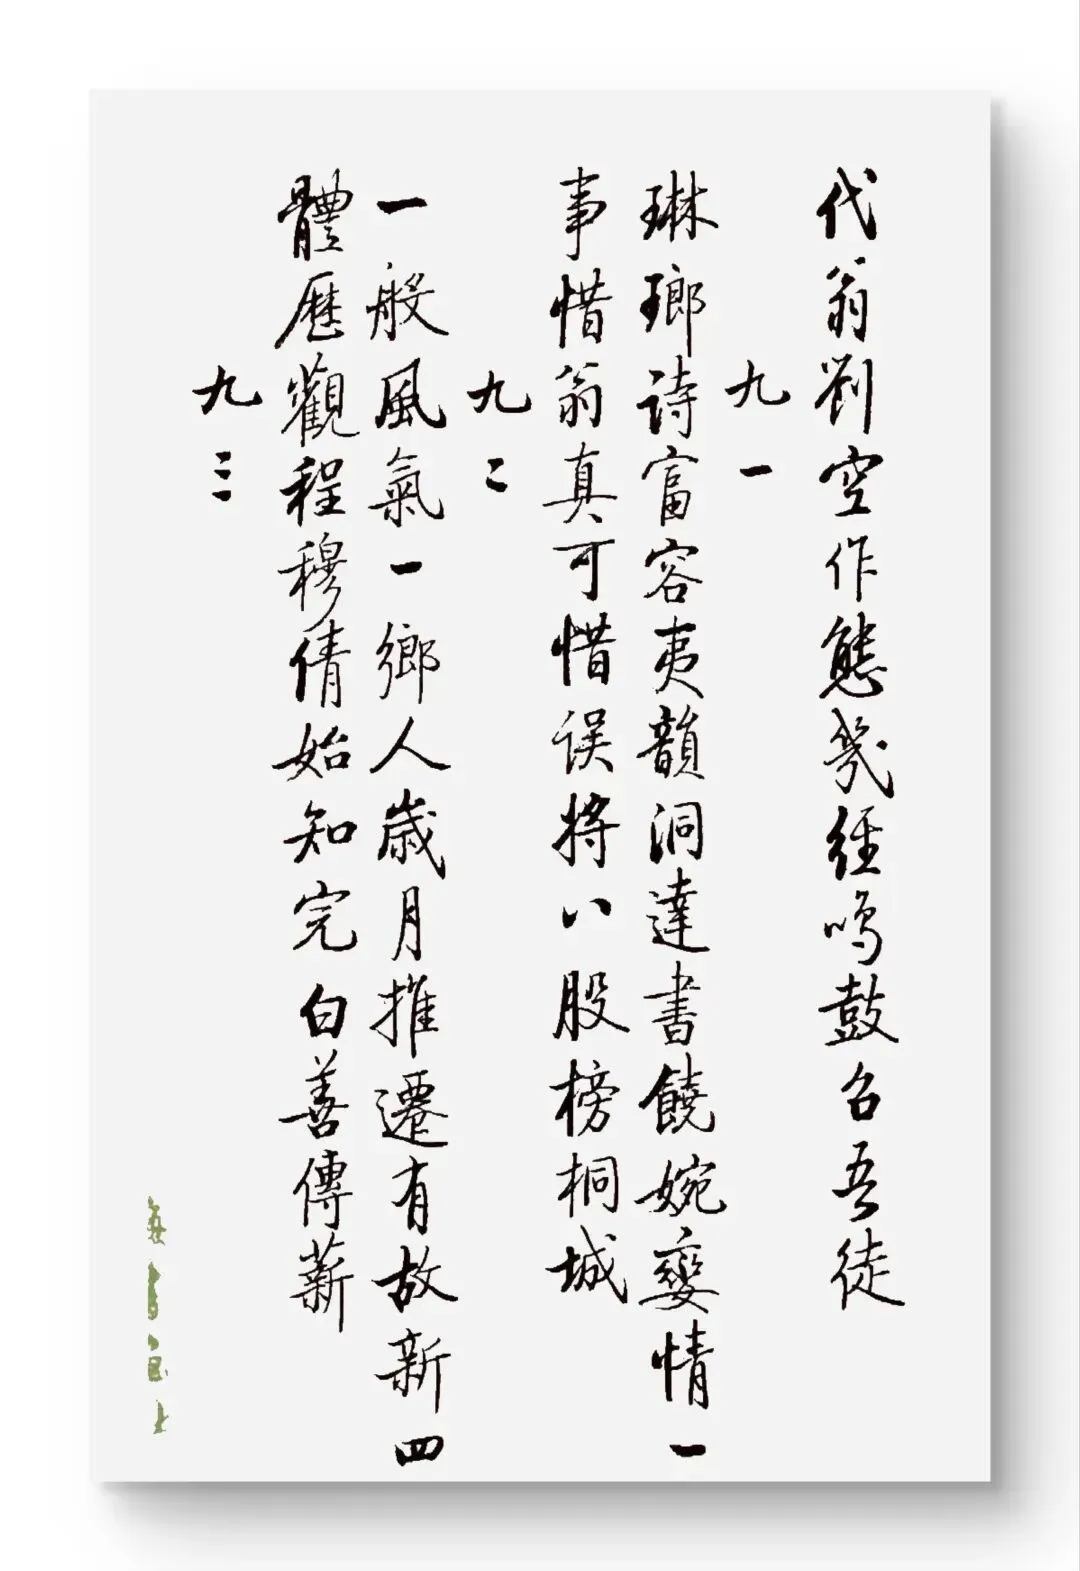 代翁劉空作態幾經鳴鼓召吾徒
九一
琳瑯詩富容夷韻洞達書饒婉孌情一
事惜翁真可惜误將八股榜桐城
九二
一般風氣一鄉人歲月推遷有故新四
體歷觀程穆倩始知完白善傳薪
九三